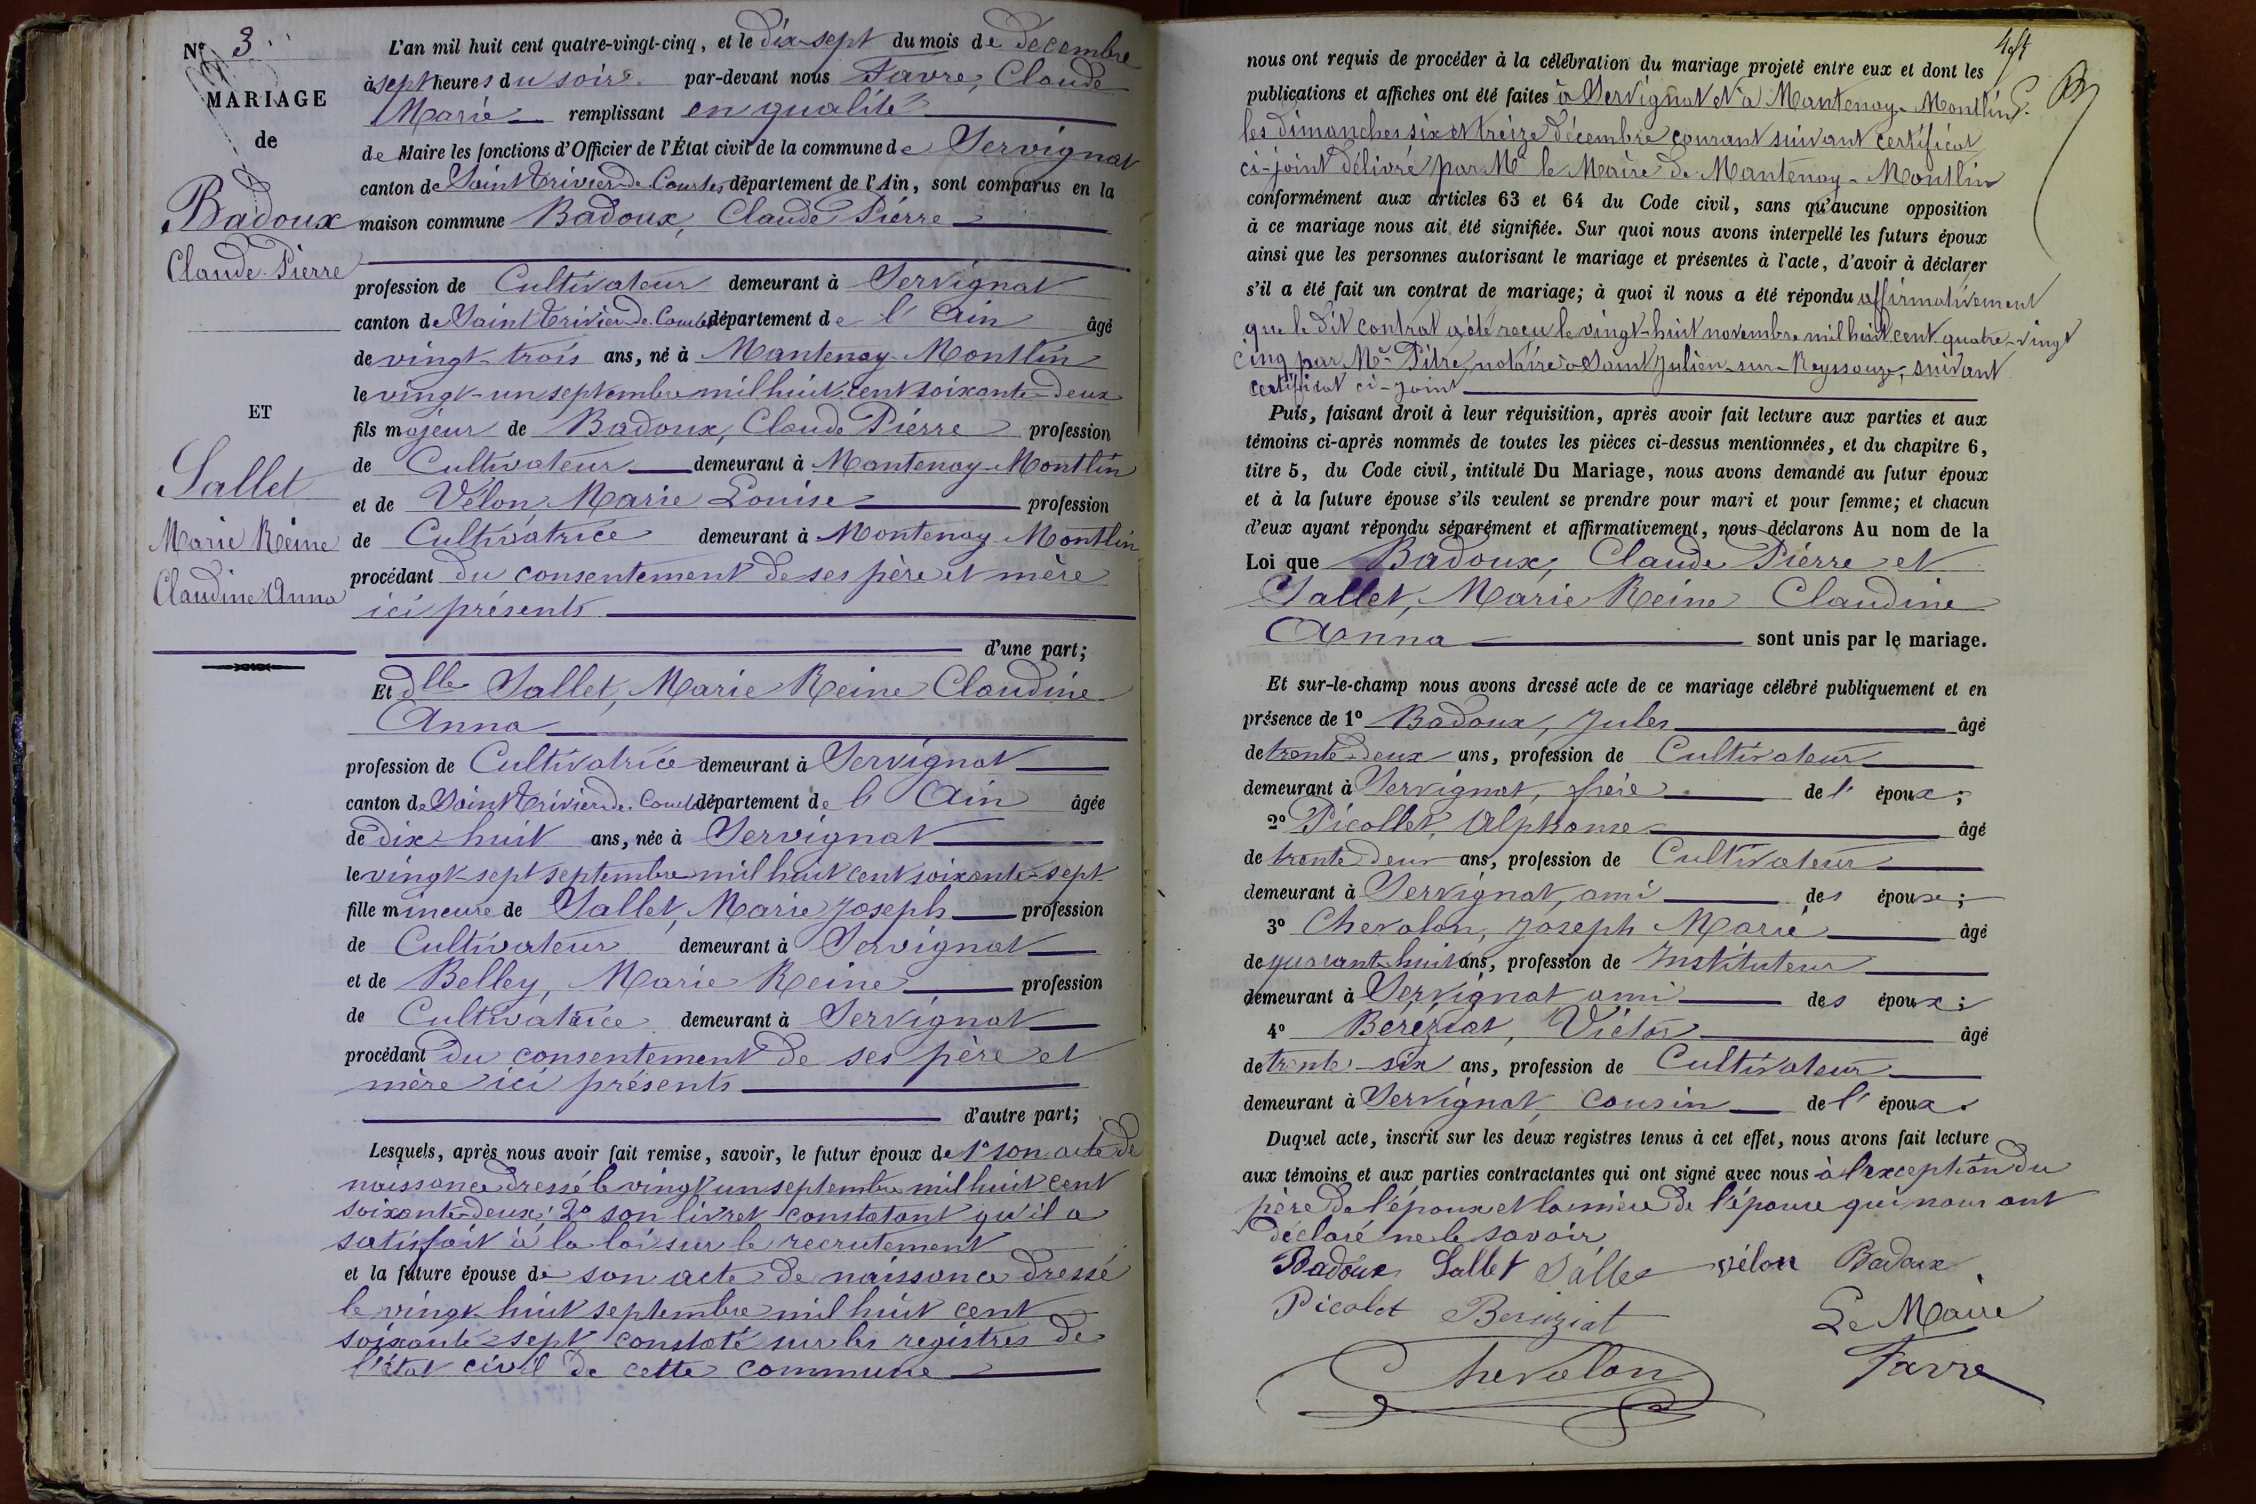 N° 3
MARIAGE
de
Badoux
Claude Pierre
ET
Sallet
Marie Reine
Claudine Anna
L'an mil huit cent quatre-vingt-cinq, et le dix-sept du mois de décembre
à sept heures du soir par-devant nous Favre, Claude
Marie remplissant en qualité
de Maire les fonctions d'Officier de l'État civil de la commune de Servignat
canton de Saint Trivier de Courtes, département de l'Ain, sont comparus en la
maison commune Badoux, Claude Pierre
profession de Cultivateur demeurant à Servignat
canton de Saint Trivier de Courtes département de l'Ain âgé
de vingt-trois ans, né à Mantenay-Montlin
le vingt-un septembre mil huit cent soixante-deux
fils majeur de Badoux, Claude Pierre profession
de Cultivateur demeurant à Mantenay-Montlin
et de Vélon, Marie Louise profession
de Cultivatrice demeurant à Montenay-Montlin
procédant du consentement de ses père et mère
ici présents
d'une part;
Et dlle Sallet, Marie Reine Claudine
Anna
profession de Cultivatrice demeurant à Servignat
canton de Saint Trivier de Courtes département de l'Ain âgée
de dix-huit ans, née à Servignat
le vingt-sept septembre mil huit cent soixante-sept
fille mineure de Sallet, Marie Joseph profession
de Cultivateur demeurant à Servignat
et de Belley, Marie Reine profession
de Cultivatrice demeurant à Servignat
procédant du consentement de ses père et
mère ici présents
d'autre part;
Lesquels, après nous avoir fait remise, savoir, le futur époux de 1° son acte de
naissance dressé le vingt un septembre mil huit cent
soixante-deux; 2° son livret constatant qu'il a
satisfait à la loi sur le recrutement
et la future épouse de son acte de naissance dressé
le vingt-huit septembre mil huit cent
soixante-sept constaté sur les registres de
l'état civil de cette commune
nous ont requis de procéder à la célébration du mariage projeté entre eux et dont les
publications et affiches ont été faites à Servignat et à Mantenay-Montlin
les dimanches six et treize décembre courant suivant certificat
ci-joint délivré par Mr le Maire de Mantenay-Montlin
conformément aux articles 63 et 64 du Code civil, sans qu'aucune opposition
à ce mariage nous ait été signifiée. Sur quoi nous avons interpellé les futurs époux
ainsi que les personnes autorisant le mariage et présentes à l'acte, d'avoir à déclarer
s'il a été fait un contrat de mariage; à quoi il nous a été répondu affirmativement
que le dit contrat a été reçu le vingt-huit novembre mil huit cent quatre-vingt
cinq par Me Pitre, notaire à Saint Julien-sur-Reyssouze, suivant
certificat ci-joint
Puis, faisant droit à leur réquisition, après avoir fait lecture aux parties et aux
témoins ci-après nommés de toutes les pièces ci-dessus mentionnées, et du chapitre 6,
titre 5, du Code civil, intitulé Du Mariage, nous avons demandé au futur époux
et à la future épouse s'ils veulent se prendre pour mari et pour femme; et chacun
d'eux ayant répondu séparément et affirmativement, nous déclarons Au nom de la
Loi que Badoux, Claude Pierre et
Sallet, Marie Reine Claudine
Anna sont unis par le mariage.
Et sur-le-champ nous avons dressé acte de ce mariage célébré publiquement et en
présence de 1° Badoux, Jules âgé
de trente-deux ans, profession de Cultivateur
demeurant à Servignat, frère de l'époux;
2° Picollet, Alphonse âgé
de trente deux ans, profession de Cultivateur
demeurant à Servignat, ami des époux;
3° Chevalon, Joseph Marie âgé
de quarante huit ans, profession de Instituteur
demeurant à Servignat ami des époux;
4° Béréziat, Victor âgé
de trente-six ans, profession de Cultivateur
demeurant à Servignat, cousin de l'époux.
Duquel acte, inscrit sur les deux registres tenus à cet effet, nous avons fait lecture
aux témoins et aux parties contractantes qui ont signé avec nous à l'exception du
père de l'époux et la mère de l'épouse qui nous ont
déclaré ne le savoir
Badoux Sallet Sallet vélon Badoux
Picolet Beréziat Le Maire
Chevalon Favre